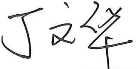 丁文华